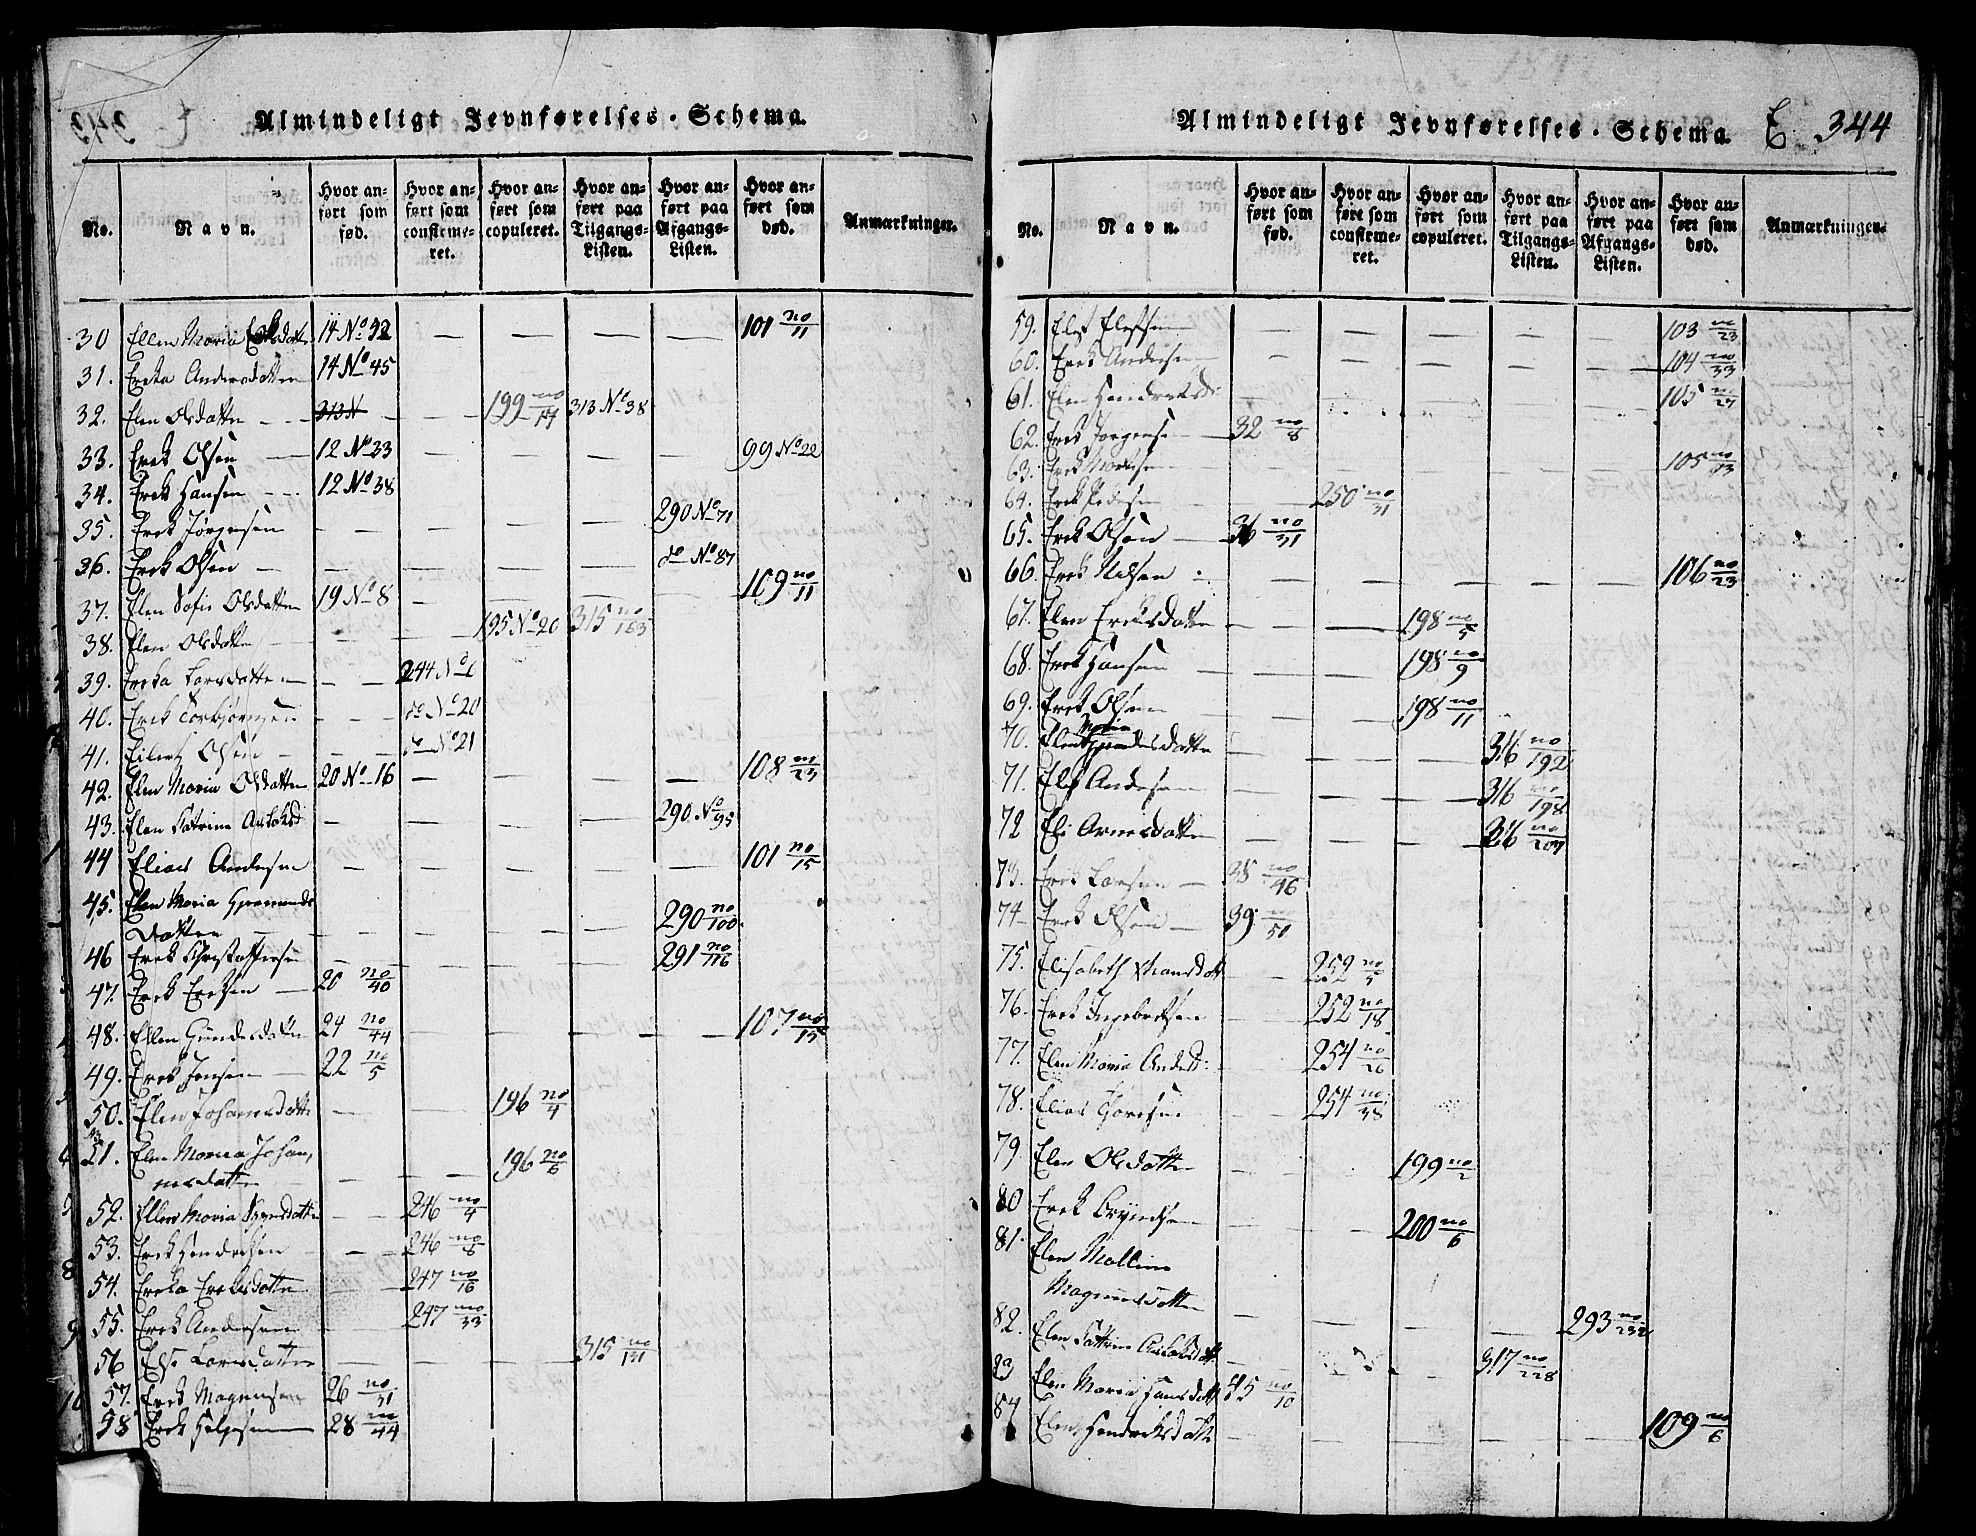 Almindeligt Jevnførelses-Schema.
No. | Navn. | Hvor anført som fød. | Hvor anført som confirmeret. | Hvor anført som copuleret. | Hvor anført paa Tilgangs-Listen. | Hvor anført paa Afgangs-Listen. | Hvor anført som død. | Anmærkninger.
30 Ellen Maria 14 No 32 — — — — 101 no/11
31. Ereka Andersdatter 14 No 45
32. Elen Olsdatter — 313 N — 199 no/14 313 No 38
33. Erek Olsen — 12 No 33 99 No 22
34. Erek Hansen — 12 No 38
35. Erek Jørgensen — — — — 290 No 71
36. Erek Olsen — — — — do No 87
37. Elen Sofie Olsdatter 19 No 8 — 109 no/11
38. Elen Olsdatter — — 195 No 20 315 no/163
39. Ereka Larsdatter — — 244 No 6
40. Erek Torbjørnsen — — do No 20
41. Eilert Olsen — — do No 21
42. Elen Maria Olsdatter 20 No 16 — — — — 108 no/23
43. Elen Catrine — — — — 290 No 95
44 Elias Andersen — — — — — 101 no/15
45. Elen Maria
datter — — — — 290 no/100
46 Erek Christoffersen — — — — 291 no/116
47. Erek Ereksen — 20 no/40
48. Ellen Gundersdatter 24 no/44 — — — — 107 no/13
49. Erek Jensen — 22 no/5
50. Elen Johansdatter — — 196 no/4
51. Elen Maria Johan
nesdatter — — 196 no/6
52. Ellen Maria — — 246 no/4
53. Erek Hendrichsen — — 246 no/8
54. Ereka Ereksdatter — — 247 no/16
55. Erek Andersen — — 247 no/33
56 Else Larsdatter — — — 315 no/131
57. Erek Magnusen 26 no/31
58 Erek Helgesen — 28 no/44
Almindeligt Jevnførelses-Schema. E 344
No. | Navn. | Hvor anført som fød. | Hvor anført som confirmeret. | Hvor anført som copuleret. | Hvor anført paa Tilgangs-Listen. | Hvor anført paa Afgangs-Listen. | Hvor anført som død. | Anmærkninger.
59. — — — — — 103 no/23
60. Erek Andersen — — — — — 104 no/33
61. Elen — 105 no/27
62. Erek Jørgensen — 32 no/8
63. Erek — — — — — 105 no/13
64. Erek Pedersen — — 250 no/31
65. Erek Olsen — 36 no/31
66. Erek Nilsen — — — — — 106 no/23
67. Elen Ereksdatter — — 198 no/5
68. Erek Hansen — — 198 no/9
69. Erek Olsen — — 198 no/11
70. Elen Maria — — — 316 no/192
71. Andersen — — — 316 no/198
72 Eli Arnesdatter — — — 316 no/207
73. Erek Larsen — 38 no/46
74 Erek Olsen — 39 no/50
75. Elisabeth — 252 no/5
76. Erek Ingebretsen — 252 no/18
77. Elen Maria Andersd: — 254 no/26
78. Elias — 254 no/38
79 Elen Olsdatter — — 199 no/2
80 Erek — — 200 no/6
81. Elen Malline
Magnusdatter — — — — 293 no/232
82. Elen Cattrine — 317 no/228
83 Elen Maria Hansdatter 45 no/10
84 Elen Hendreksdatter — — — — — 109 no/6